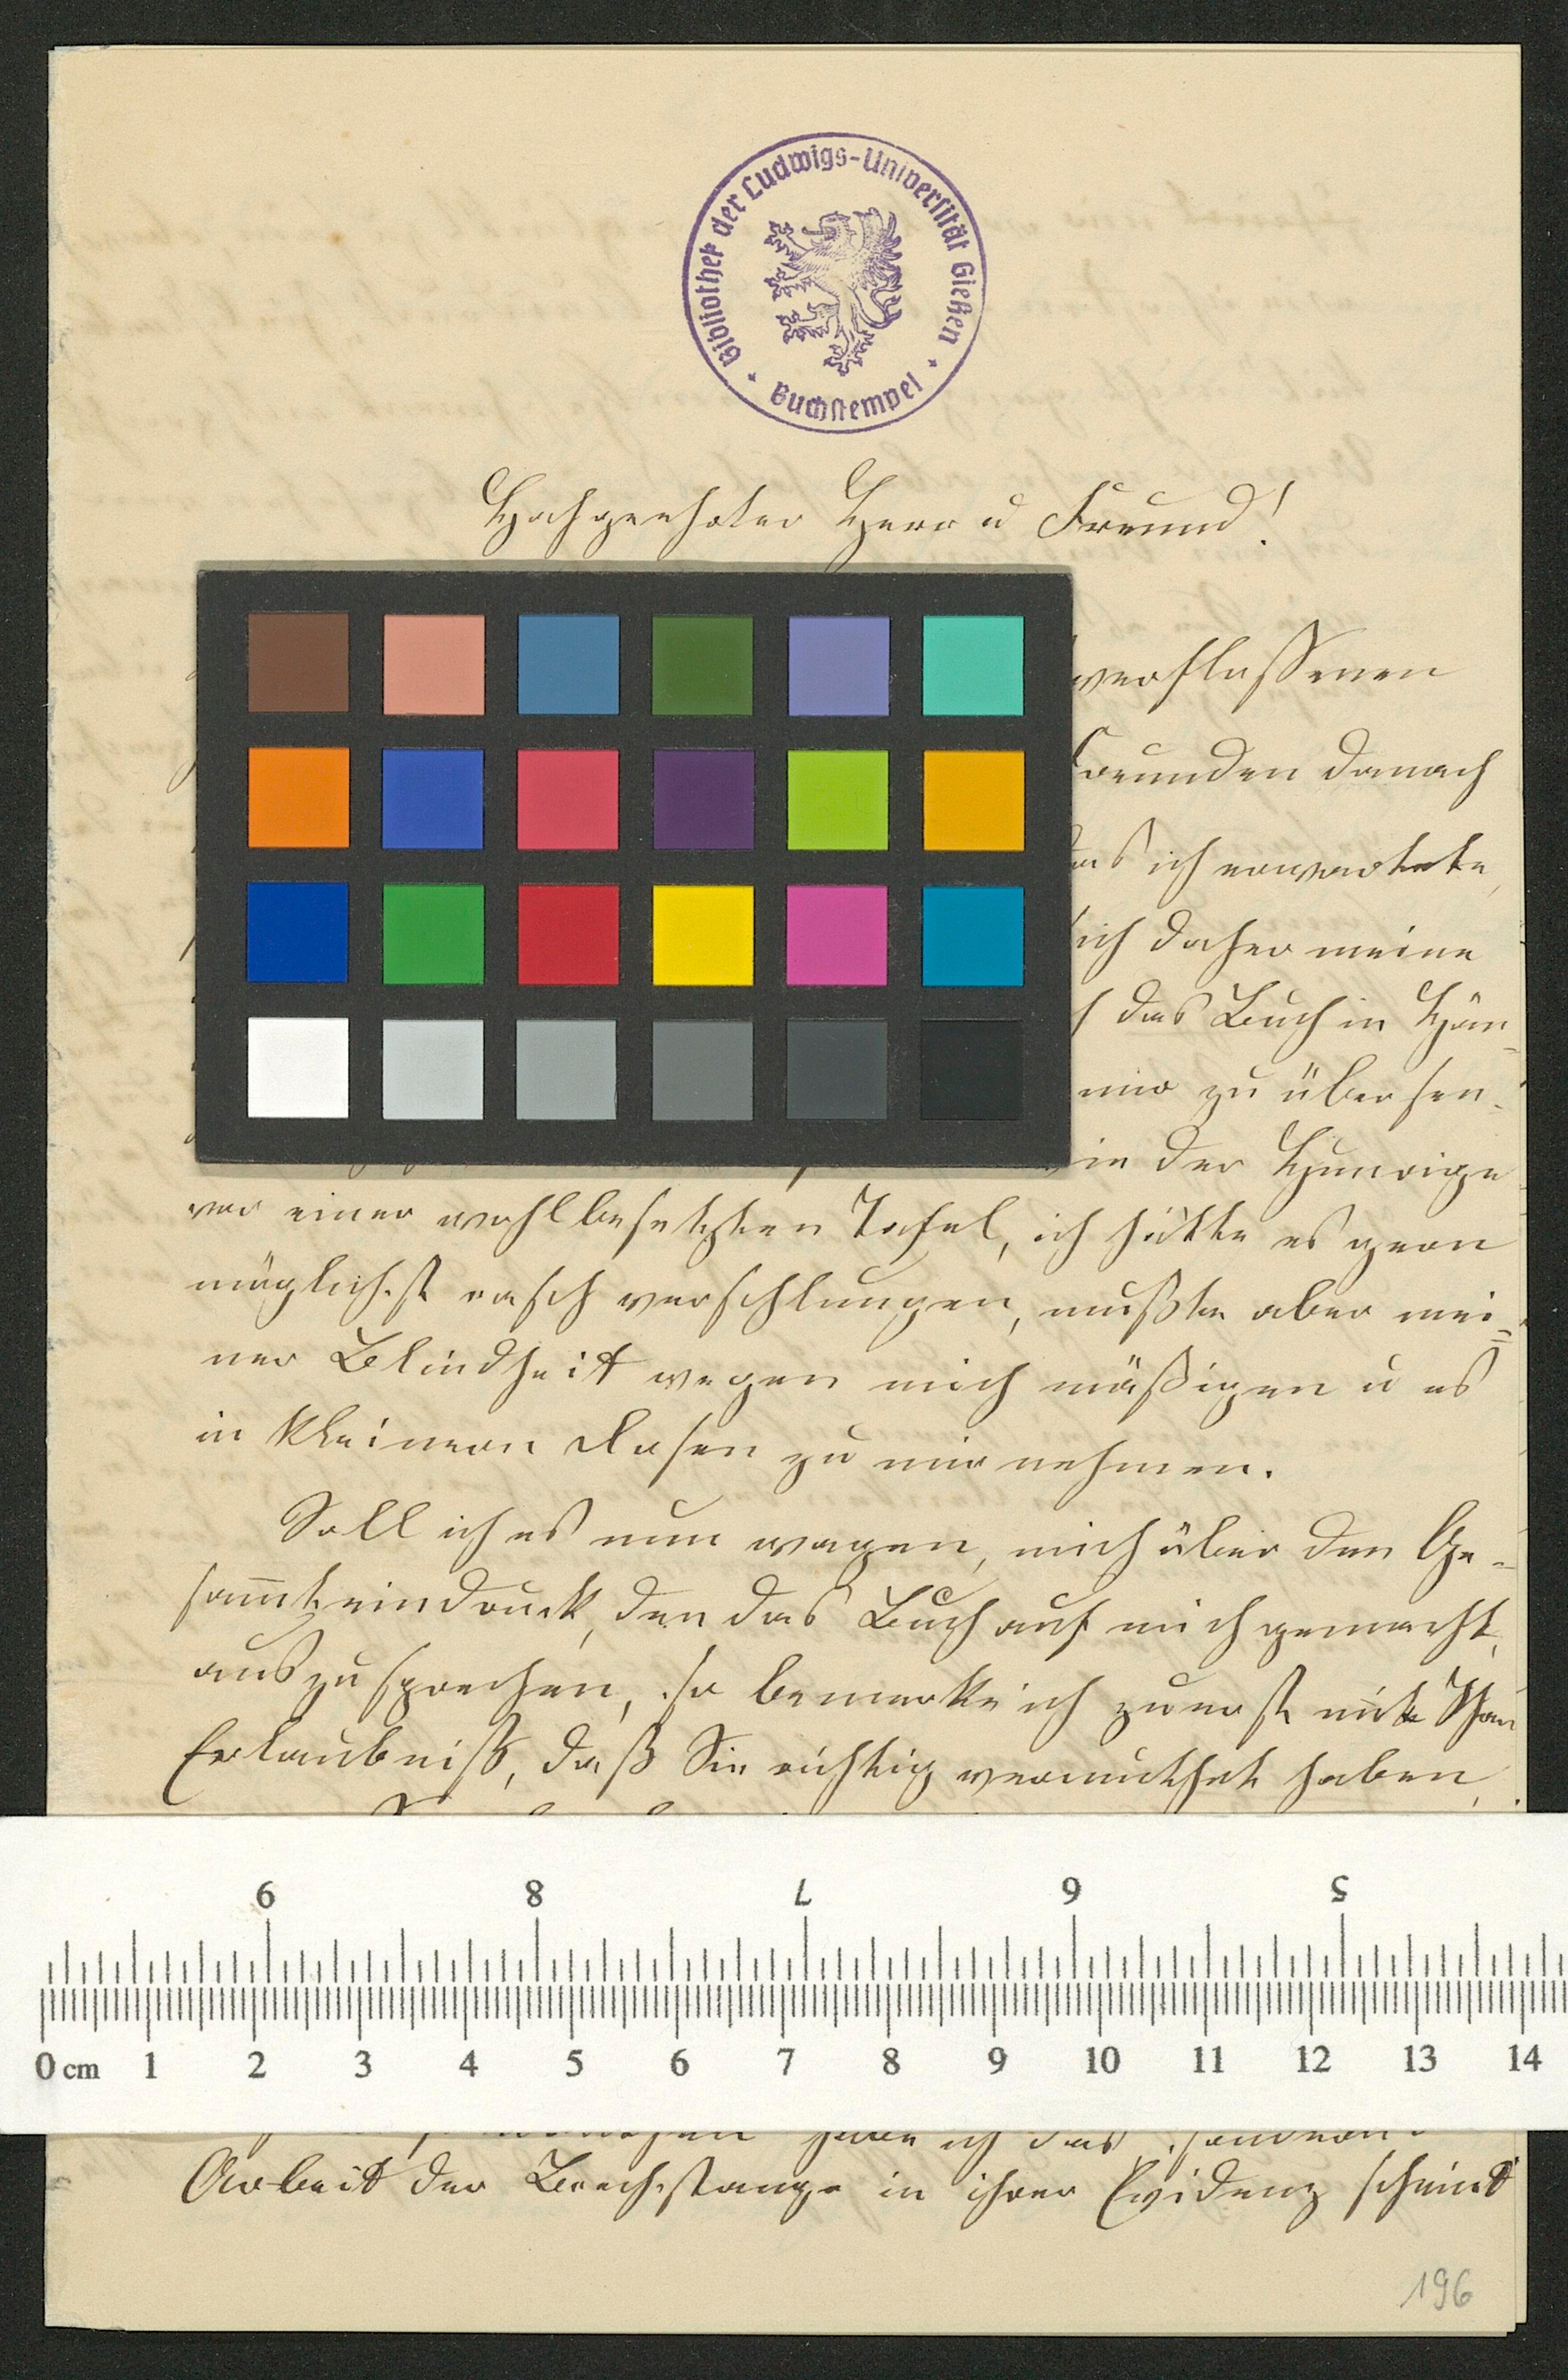 Bibliothek der Ludwigs-Universität Gießen
Buchstempel
Hochgeehrter Herr u Freund!
verflossenen
danach
ich erwartete,
ich daher meine
das Buch in Hän-
mir zu übersen-
in der Hungrige
vor einer wohlbesetzten Tafel, ich hätte es gern
möglichst rasch verschlungen, mußte aber mei-
ner Blindheit wegen mich mäßigen u es
in kleinern Dosen zu mir nehmen.
Soll ich es nun wagen, mich über den Ge-
sam̄teindruck, den das Buch auf mich gemacht,
auszusprechen, so bemerke ich zuerst mit Ihrer
Erlaubniß, daß Sie richtig vermuthet haben,
9 8 7 6 5
0 cm 1 2 3 4 5 6 7 8 9 10 11 12 13 14
habe ich das
Arbeit der Brechstange in ihrer Evidenz scheint
196